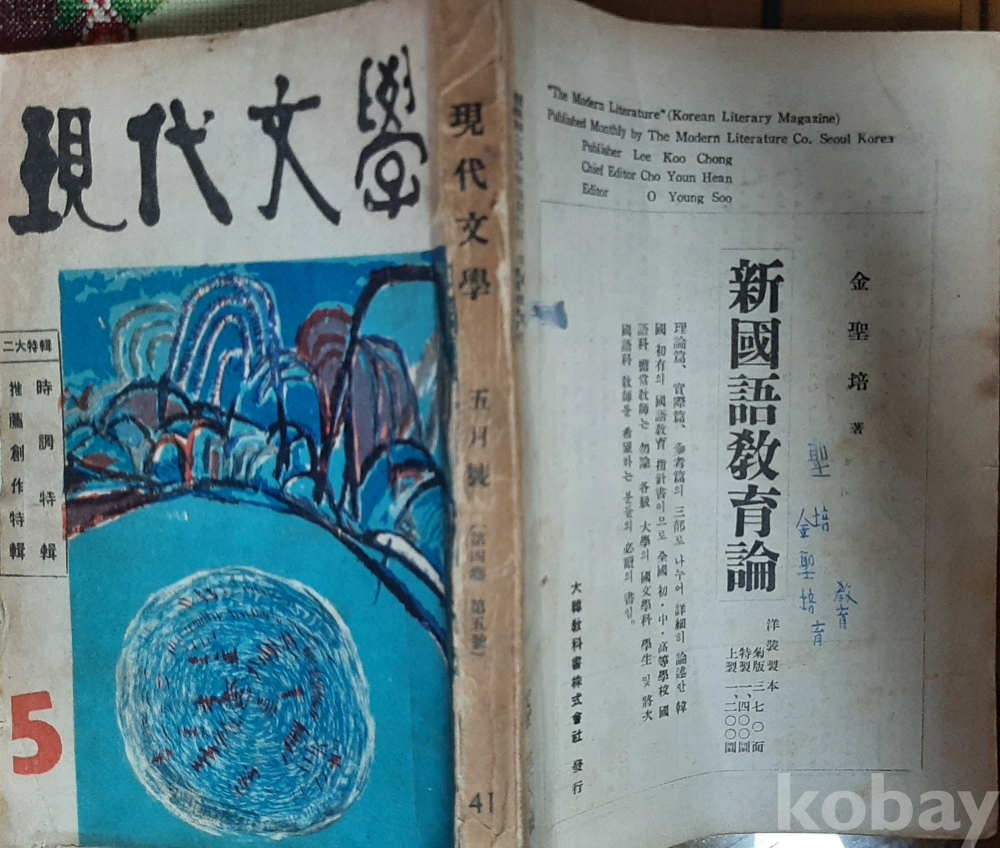 現代文學
二大特輯
時調特輯
推薦創作特輯
5
現代文學 五月號 (第四卷 第五號)
41
"The Modern Literature" (Korean Literary Magazine)
Published Monthly by The Modern Literature Co. Seoul Korea
Publisher Lee Koo Chong
Chief Editor Cho Youn Hean
Editor O Young Soo
金聖培 著
新國語敎育論
洋裝製本
菊版 三七〇面
特製 一、四〇〇圜
上製 一、二〇〇圜
理論篇、實際篇、參考篇의 三部로 나누어 詳細히 論述한 韓
國 初有의 國語敎育 指針書이므로 全國 初·中·高等學校 國
語科 擔當敎師는 勿論 各級 大學의 國文學科 學生 및 將次
國語科 敎師를 希望하는 분들의 必讀의 書임。
大韓敎科書株式會社 發行
聖培
金聖培
敎育
育
kobay